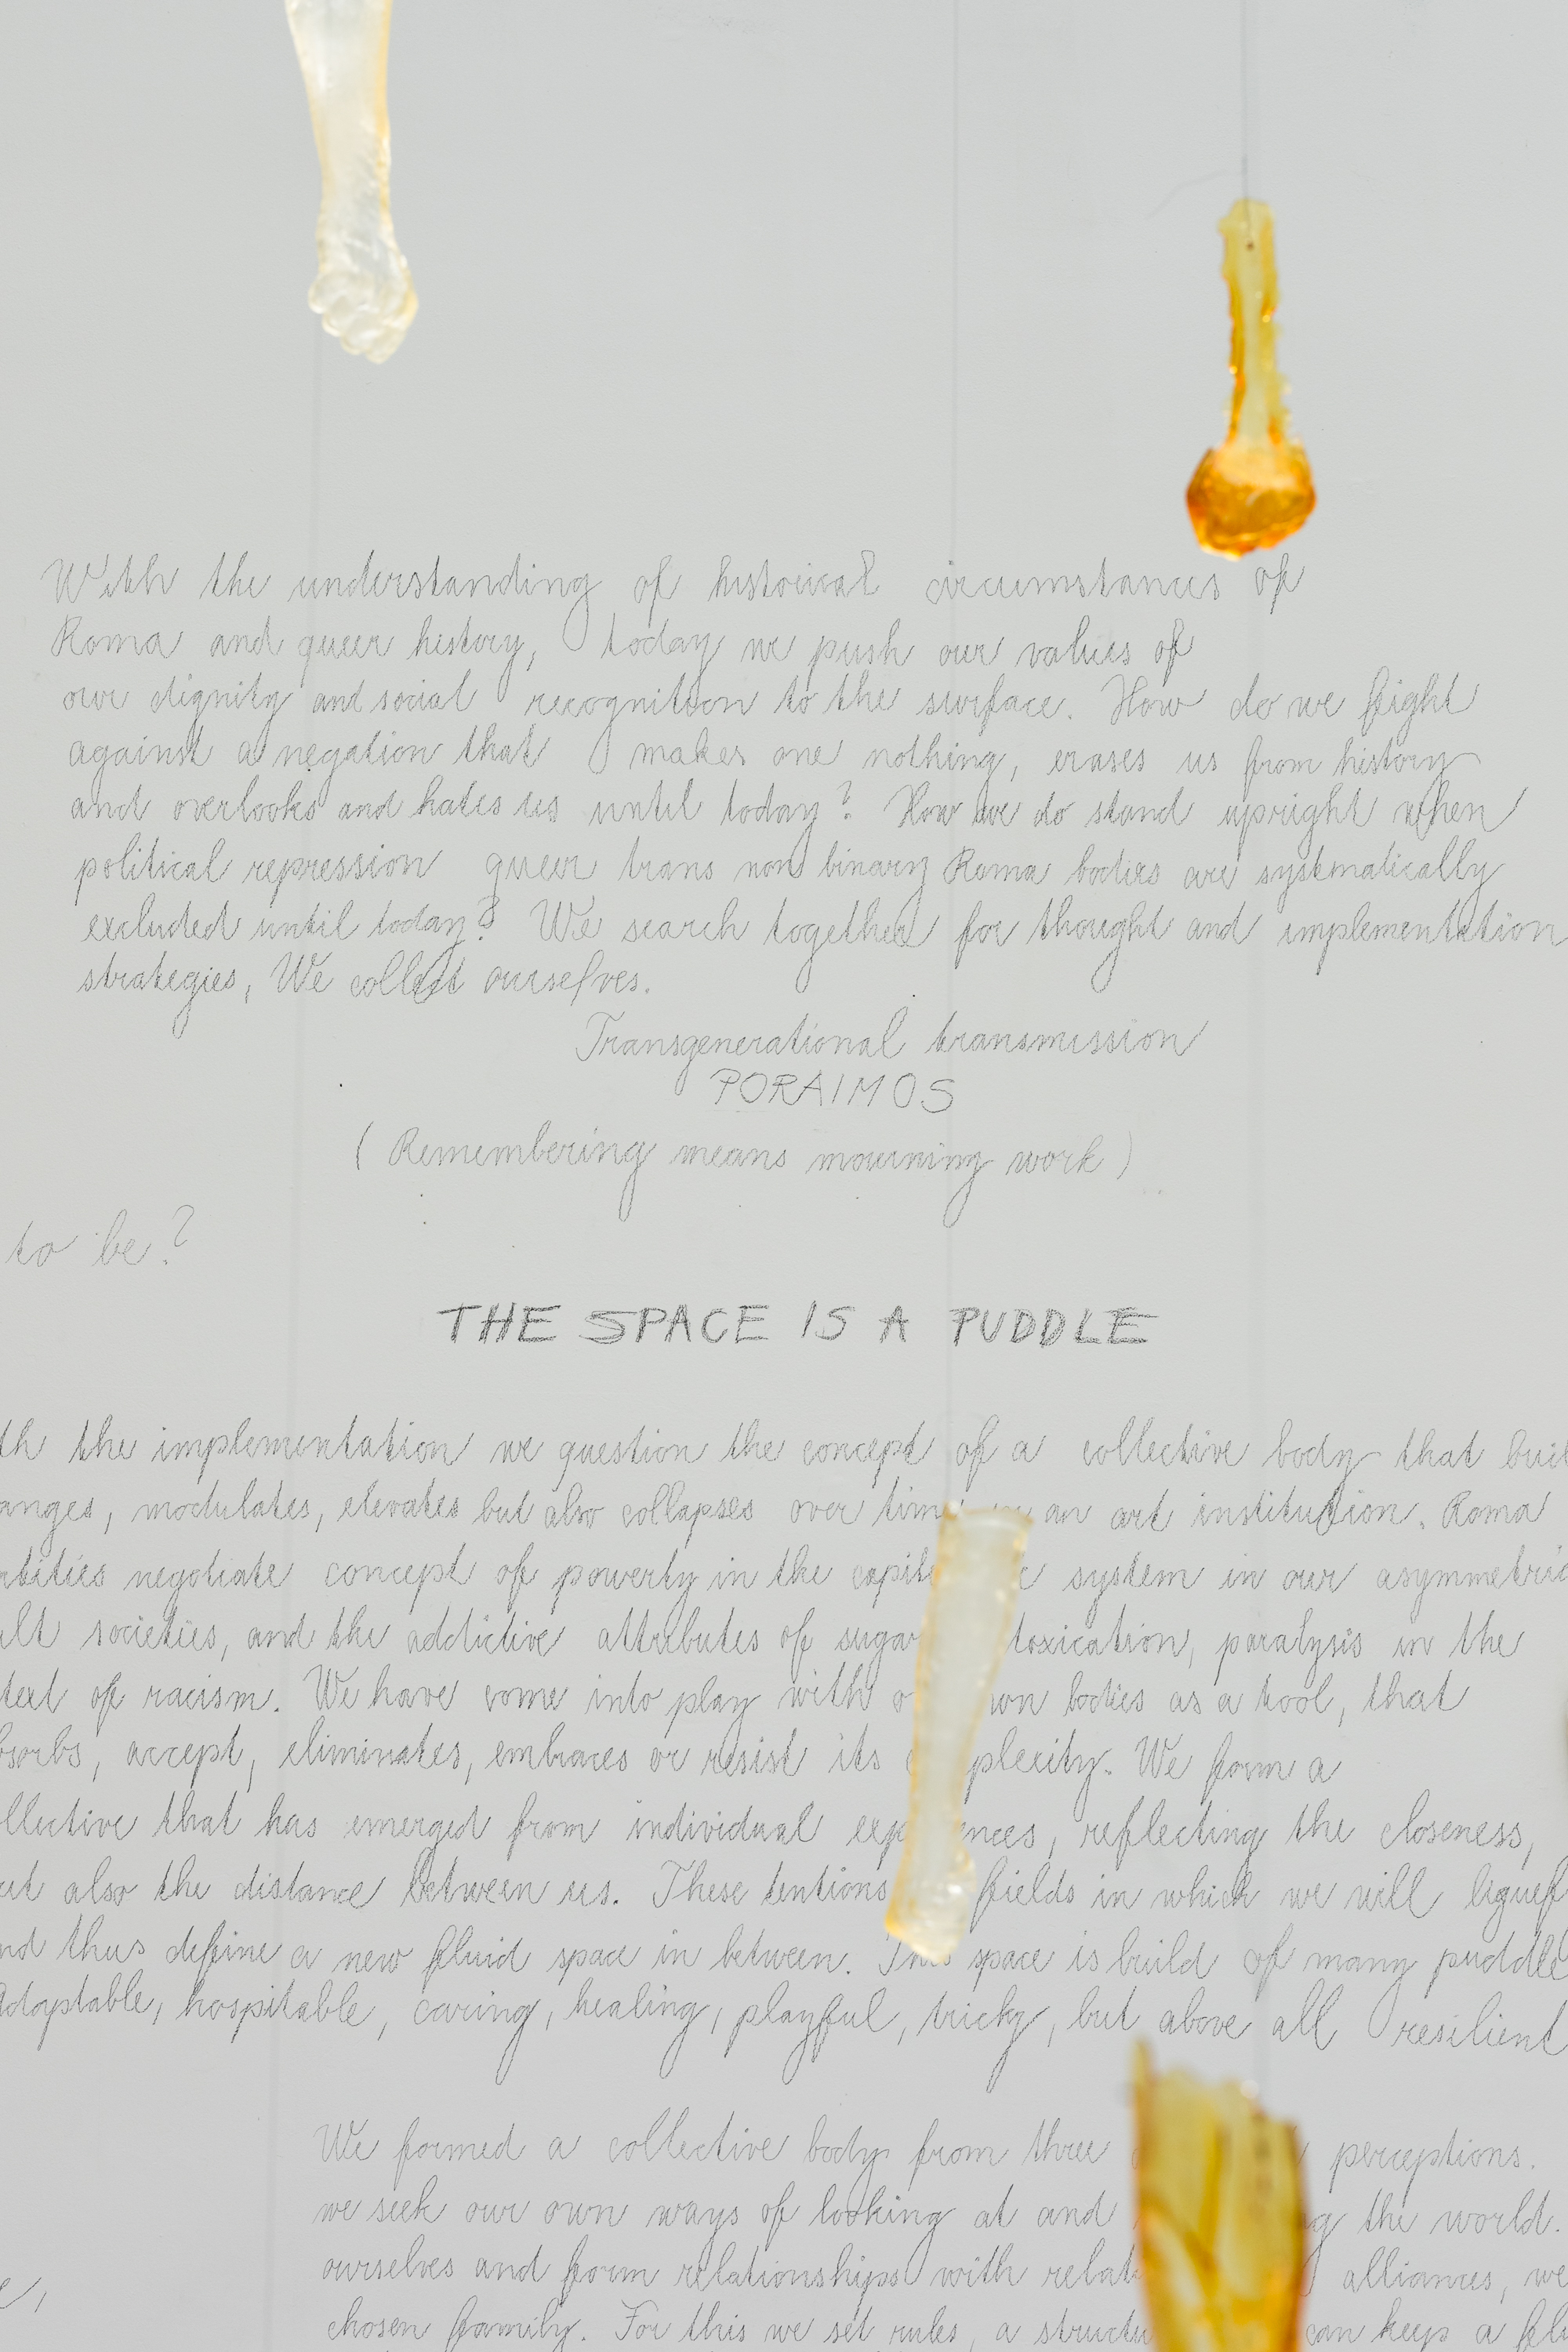 With the understanding of historical circumstances of
Roma and queer history, today we push our values of
our dignity and social recognition to the surface. How do we fight
against a negation that makes one nothing, erases us from history
and overlooks and hates us until today? How we do stand upright when
political repression queer trans non binary Roma bodies are systematically
excluded until today? We search together for thought and implementation
strategies, We collect ourselves.
Transgenerational transmission
PORAIMOS
(Remembering means mourning work)
to be?
THE SPACE IS A PUDDLE
th the implementation we question the concept of a collective body that buil
anges, modulates, elevates but also collapses over tim an art institution. Roma
ntities negotiate concept of powerty in the capit c system in our asymmetric
ult societies, and the addictive attributes of sugar toxication, paralysis in the
text of racism. We have come into play with o wn bodies as a tool, that
bsorbs, accept, eliminates, embraces or resist its c plexity. We form a
ollective that has emerged from individual exp ences, reflecting the closeness,
ut also the distance between us. These tentions fields in which we will liquef
nd thus define a new fluid space in between. This space is build of many puddle
Adaptable, hospitable, caring, healing, playful, tricky, but above all resilient
We formed a collective body from three perceptions.
we seek our own ways of looking at and ng the world.
ourselves and form relationships with relat alliances, we
e,
chosen family. For this we set rules, a structu can keep a fl